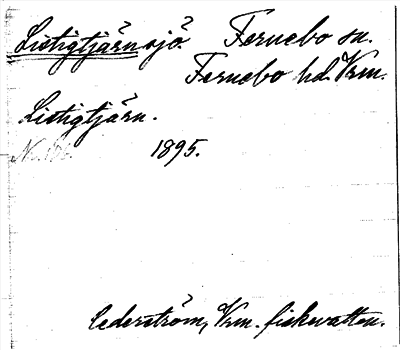 Listigtjärn sjö? Fernebo sn.
Fernebo hd. Vrm.
Listigtjärn.
1895.
Cederström, Vrm. fiskevatten.